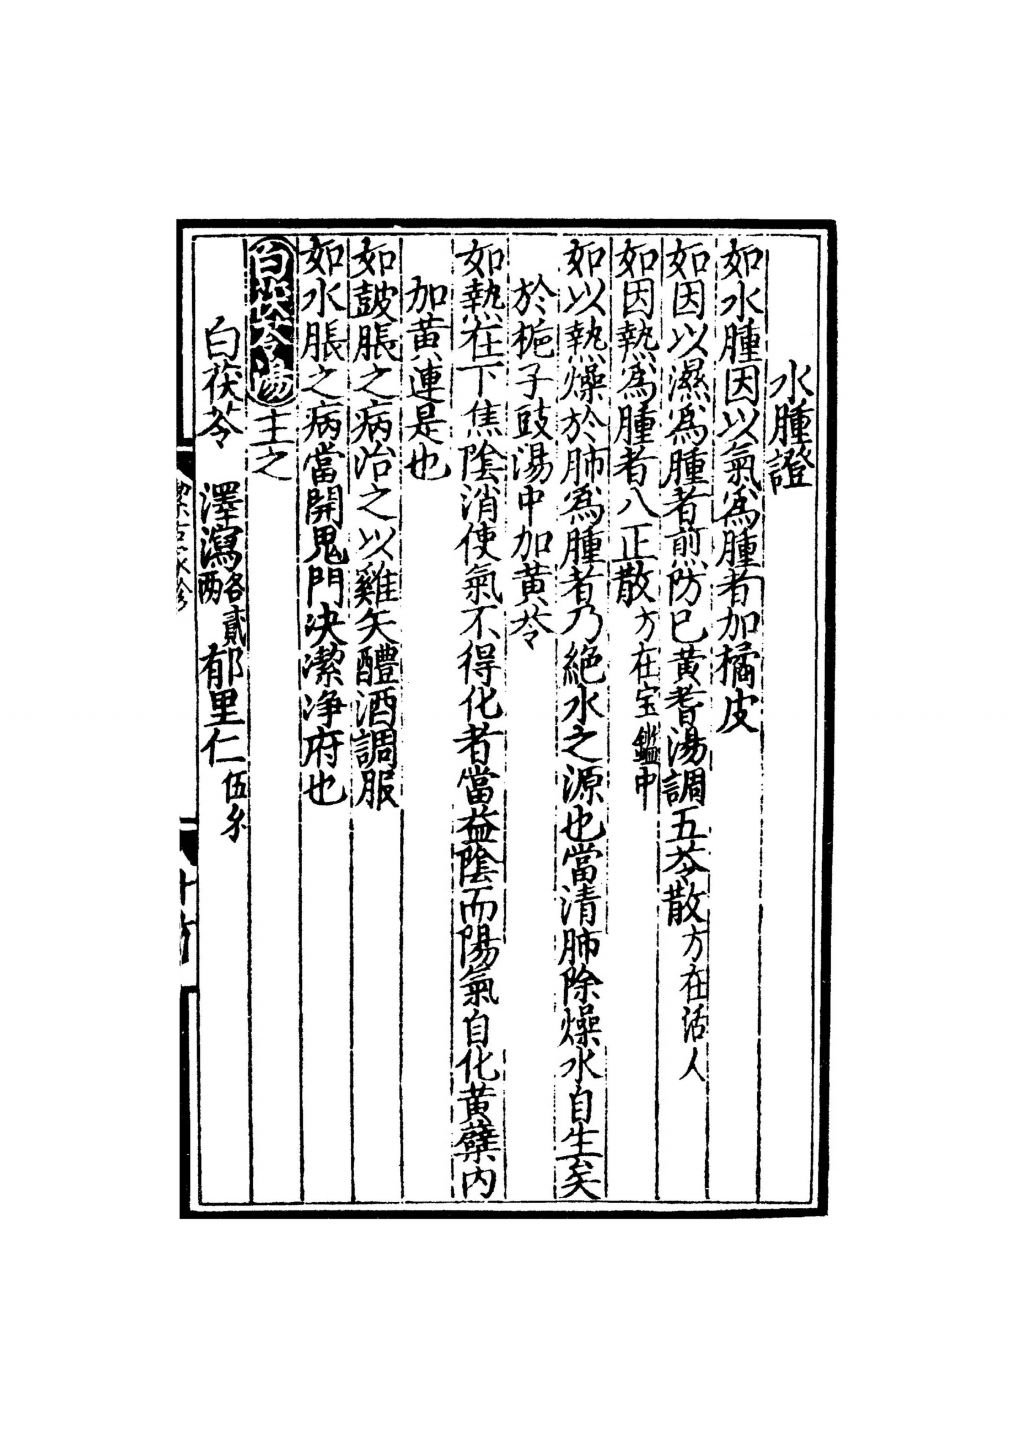 水腫證
如水腫因以氣爲腫者加橘皮
如因以濕爲腫者煎防已黃耆湯調五苓散方在活人
如因熱爲腫者八正散方在宝鑑中
如以熱燥於肺爲腫者乃絕水之源也當清肺除燥水自生矣
於梔子豉湯中加黃芩
如熱在下焦陰消使氣不得化者當益陰而陽氣自化黃蘗內
加黃連是也
如皷脹之病治之以雞矢醴酒調服
如水脹之病當開鬼門决潔净府也
白茯苓湯主之
白茯苓 澤瀉各貳兩 郁里仁伍